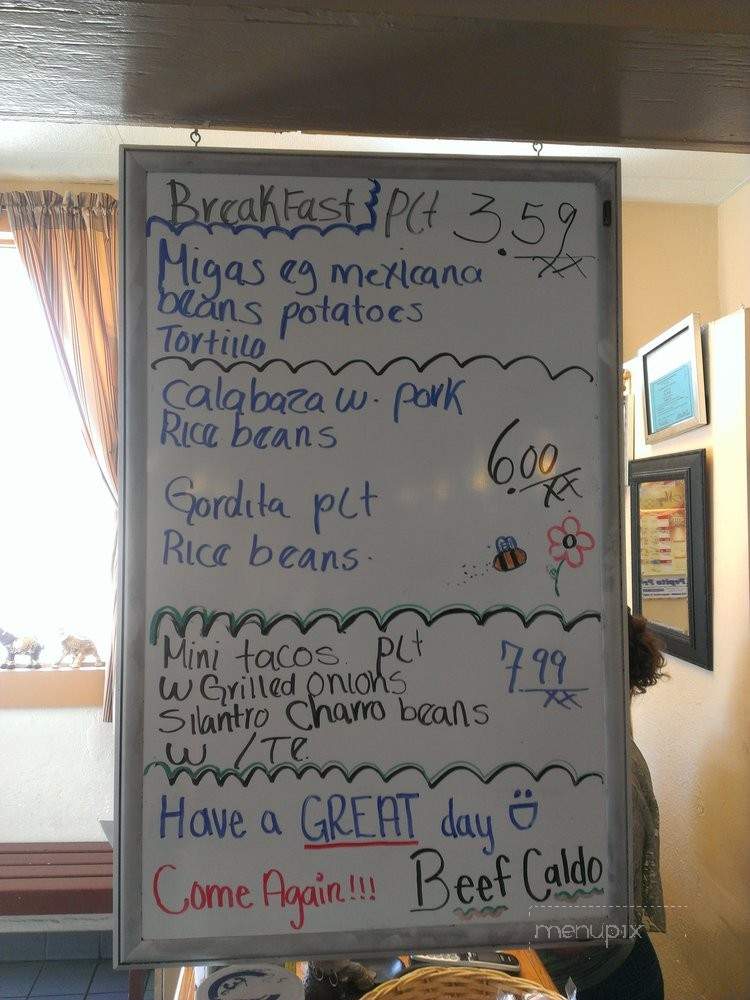 BreakFast PLt 3.59
Migas eg mexicana
beans potatoes
Tortilla
Calabaza w. pork
Rice beans
6.00
Gordita pLt
Rice beans.
Mini tacos. PLt
7.99
w Grilled onions
Silantro Charro beans
w /TE
Have a GREAT day
Come Again!!! Beef Caldo
menupix